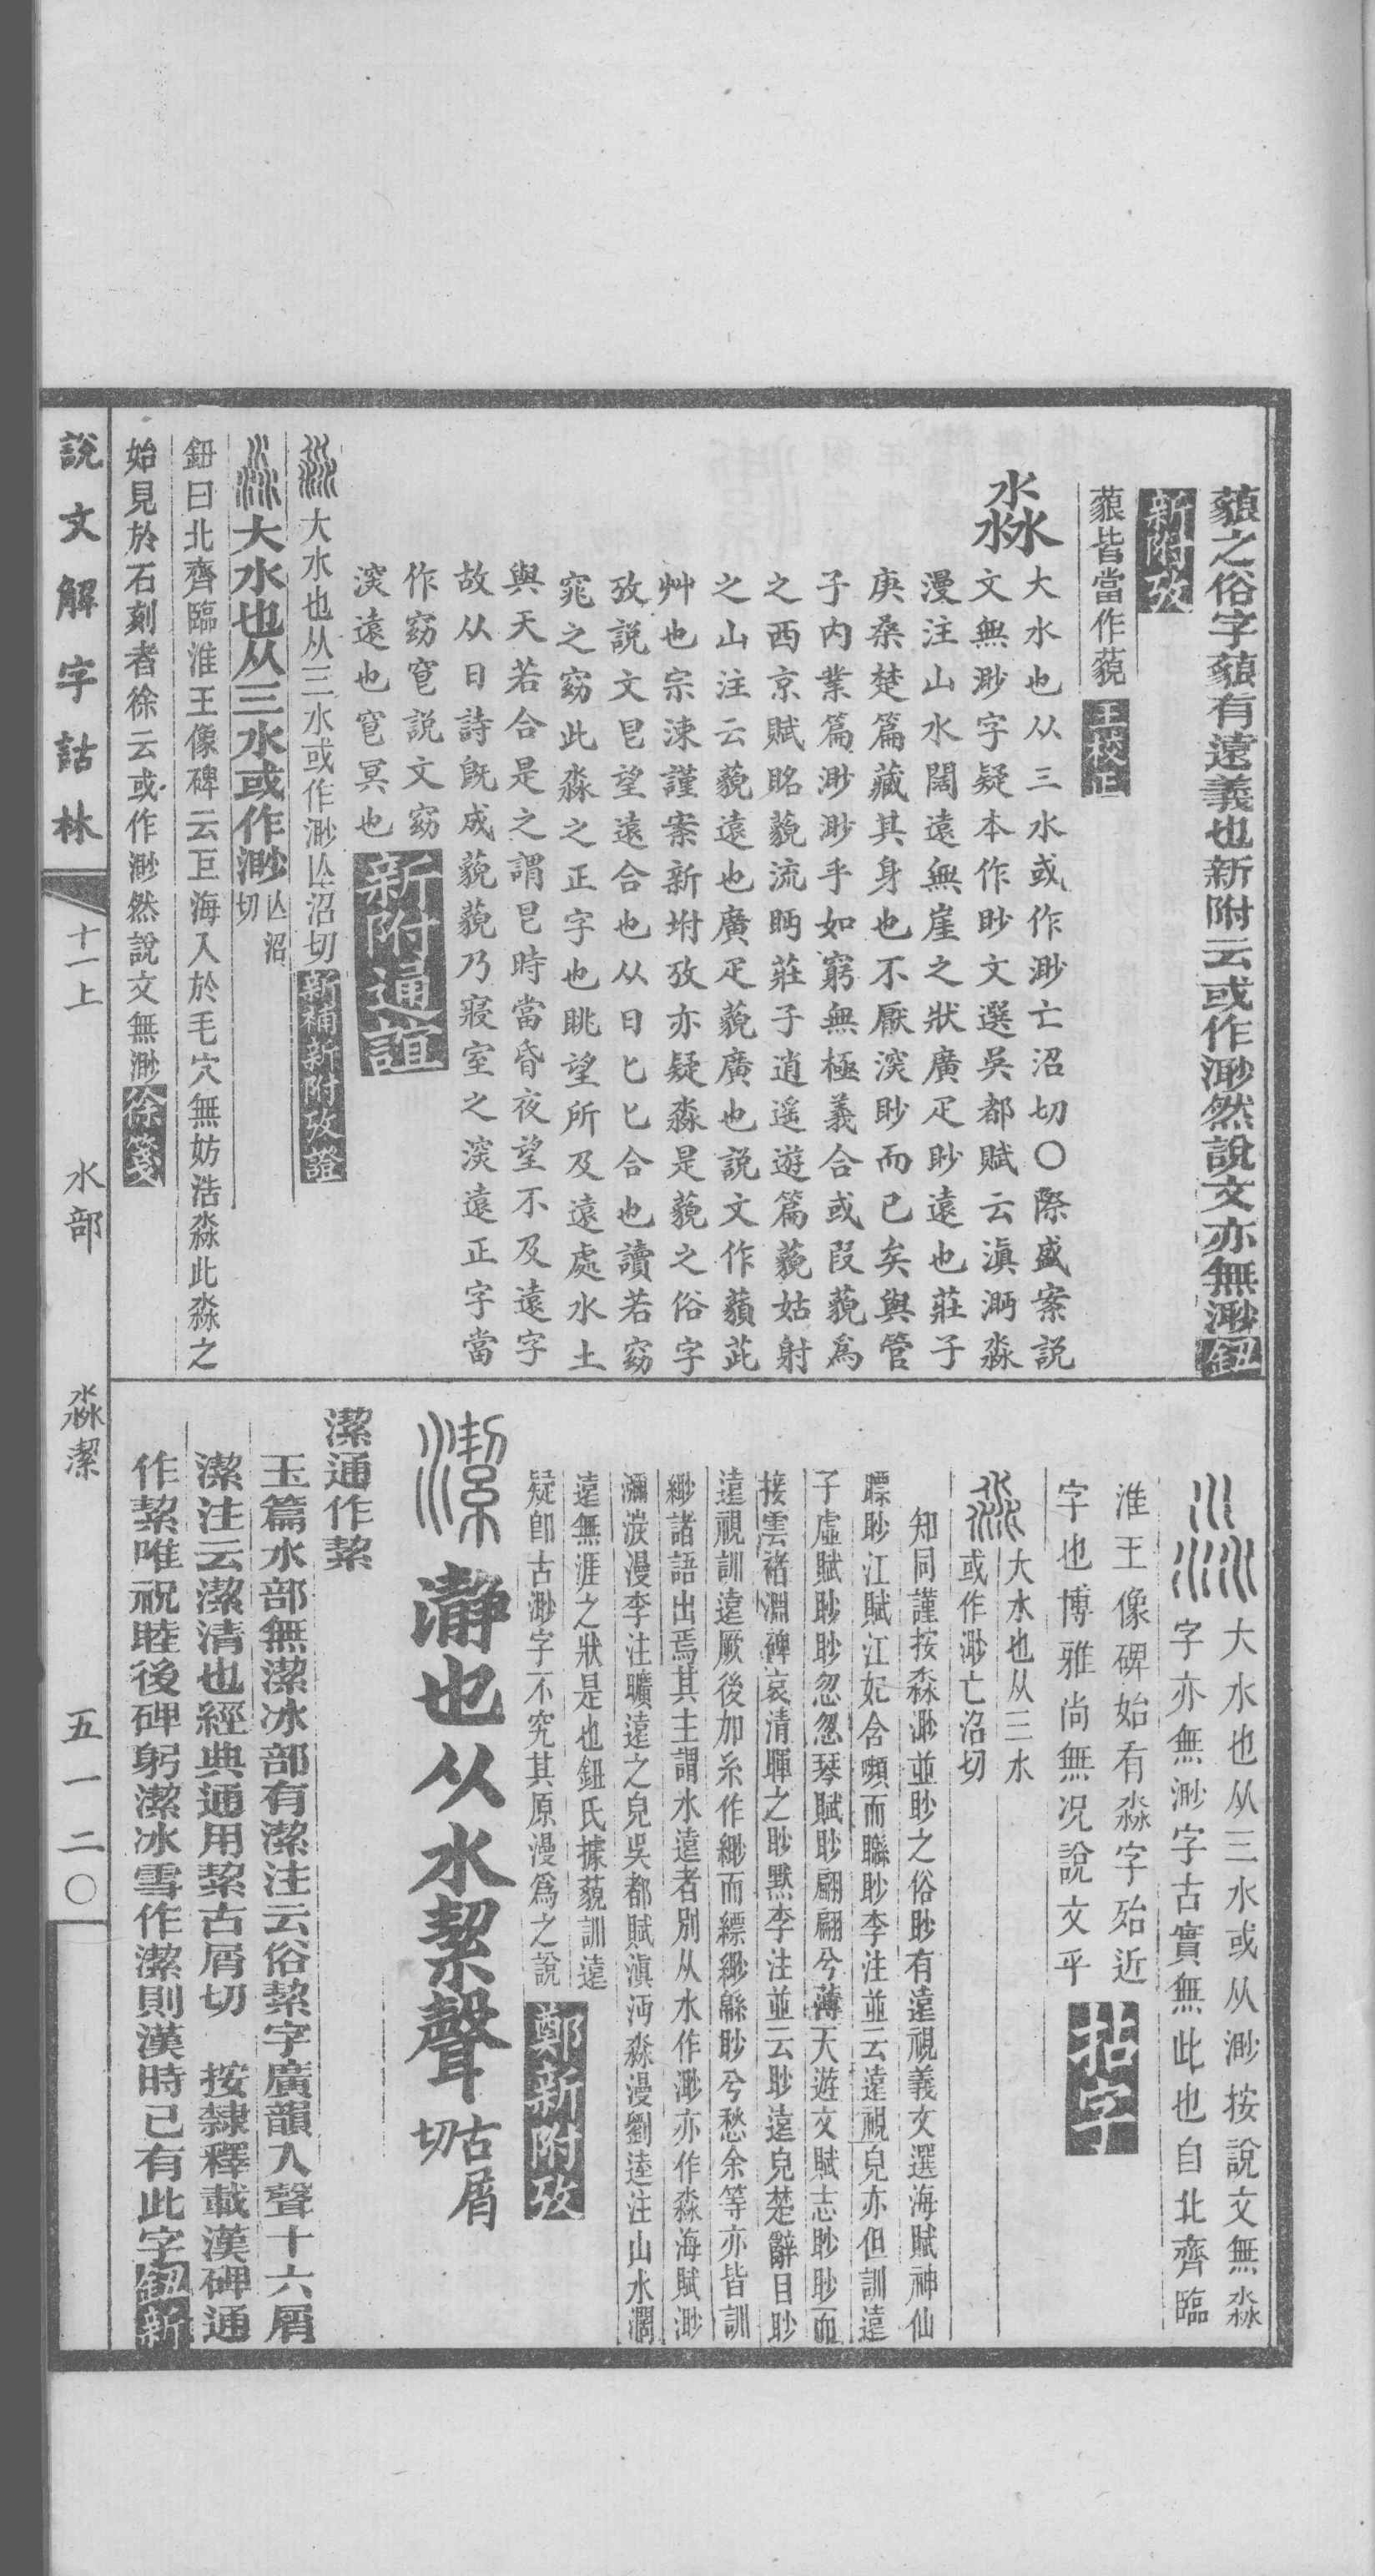 藐之俗字藐有遠義也新附云或作渺然說文亦無渺鈕
新附攷
藐皆當作藐王校正
淼大水也从三水或作渺亡沼切〇際盛案説
文無渺字疑本作眇文選吳都賦云滇㴐淼
漫注山水闊遠無崖之狀廣疋眇遠也莊子
庚桑楚篇藏其身也不厭㴱眇而已矣與管
子内業篇渺渺乎如窮無極義合或叚藐爲
之西京賦眳藐流眄莊子逍遥遊篇藐姑射
之山注云藐遠也廣疋藐廣也説文作藐茈
艸也宗涑謹案新坿攷亦疑淼是藐之俗字
攷説文㫐望遠合也从日匕匕合也讀若窈
窕之窈此淼之正字也眺望所及遠處水土
與天若合是之謂㫐時當昏夜望不及遠字
故从日詩旣成藐藐乃寢室之㴱遠正字當
作窈窅説文窈
㴱遠也窅冥也新附通誼
淼大水也从三水或作渺亾沼切新補新附攷證
淼大水也从三水或作渺亾沼切
鈕曰北齊臨淮王像碑云巨海入於毛穴無妨浩淼此淼之
始見於石刻者徐云或作渺然說文無渺徐箋
淼大水也从三水或从渺按說文無淼
字亦無渺字古實無此也自北齊臨
淮王像碑始有淼字殆近
字也博雅尚無况說文乎拈字
淼大水也从三水
或作渺亡沼切
知同謹按淼渺並眇之俗眇有遠視義文選海賦神仙
瞟眇江賦江妃含嚬而矊眇李注並云遠視皃亦但訓遠
子虛賦眇眇忽忽琴賦眇翩翩兮薄天遊文賦志眇眇而
接雲褚淵碑哀清暉之眇默李注並云眇遠皃楚辭目眇
遠視訓遠厥後加糸作緲而縹緲緜眇兮愁余等亦皆訓
緲諸語出焉其主謂水遠者別从水作渺亦作淼海賦渺
瀰湠漫李注曠遠之皃吳都賦滇㴐淼漫劉逵注山水濶
遠無涯之狀是也鈕氏據藐訓遠
疑卽古渺字不究其原漫爲之說鄭新附攷
潔瀞也从水絜聲古屑切
潔通作絜
玉篇水部無潔冰部有潔注云俗絜字廣韻入聲十六屑
潔注云潔清也經典通用絜古屑切　按隸釋載漢碑通
作絜唯祝睦後碑躬潔冰雪作潔則漢時已有此字鈕新
說文解字詁林
十一上　水部　淼潔　五一二〇